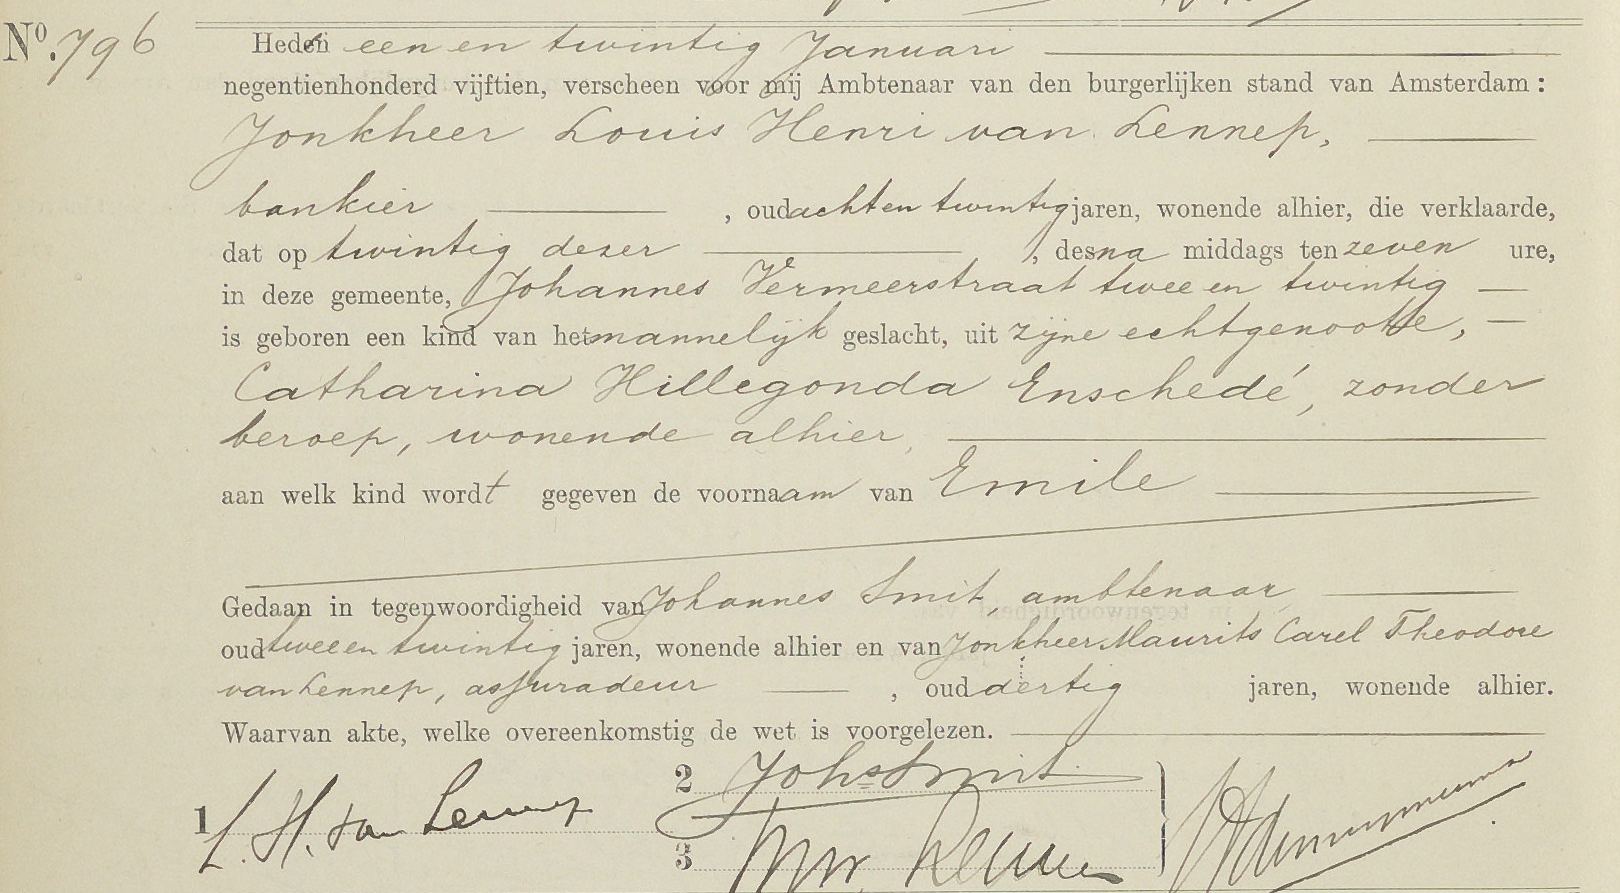 Nº. 796
Heden een en twintig Januari
negentienhonderd vijftien, verscheen voor mij Ambtenaar van den burgerlijken stand van Amsterdam:
Jonkheer Louis Henri van Lennep,
bankier , oud acht en twintig jaren, wonende alhier, die verklaarde,
dat op twintig dezer , des na middags ten zeven ure,
in deze gemeente, Johannes Vermeerstraat twee en twintig
is geboren een kind van het mannelijk geslacht, uit zijne echtgenoote,
Catharina Hillegonda Enschedé, zonder
beroep, wonende alhier,
aan welk kind wordt gegeven de voornaam van Emile
Gedaan in tegenwoordigheid van Johannes Smit, ambtenaar
oud twee en twintig jaren, wonende alhier en van Jonkheer Maurits Carel Theodore
van Lennep, assuradeur , oud dertig jaren, wonende alhier.
Waarvan akte, welke overeenkomstig de wet is voorgelezen.
1 L. H. van Lennep
2 Johs Smit
3